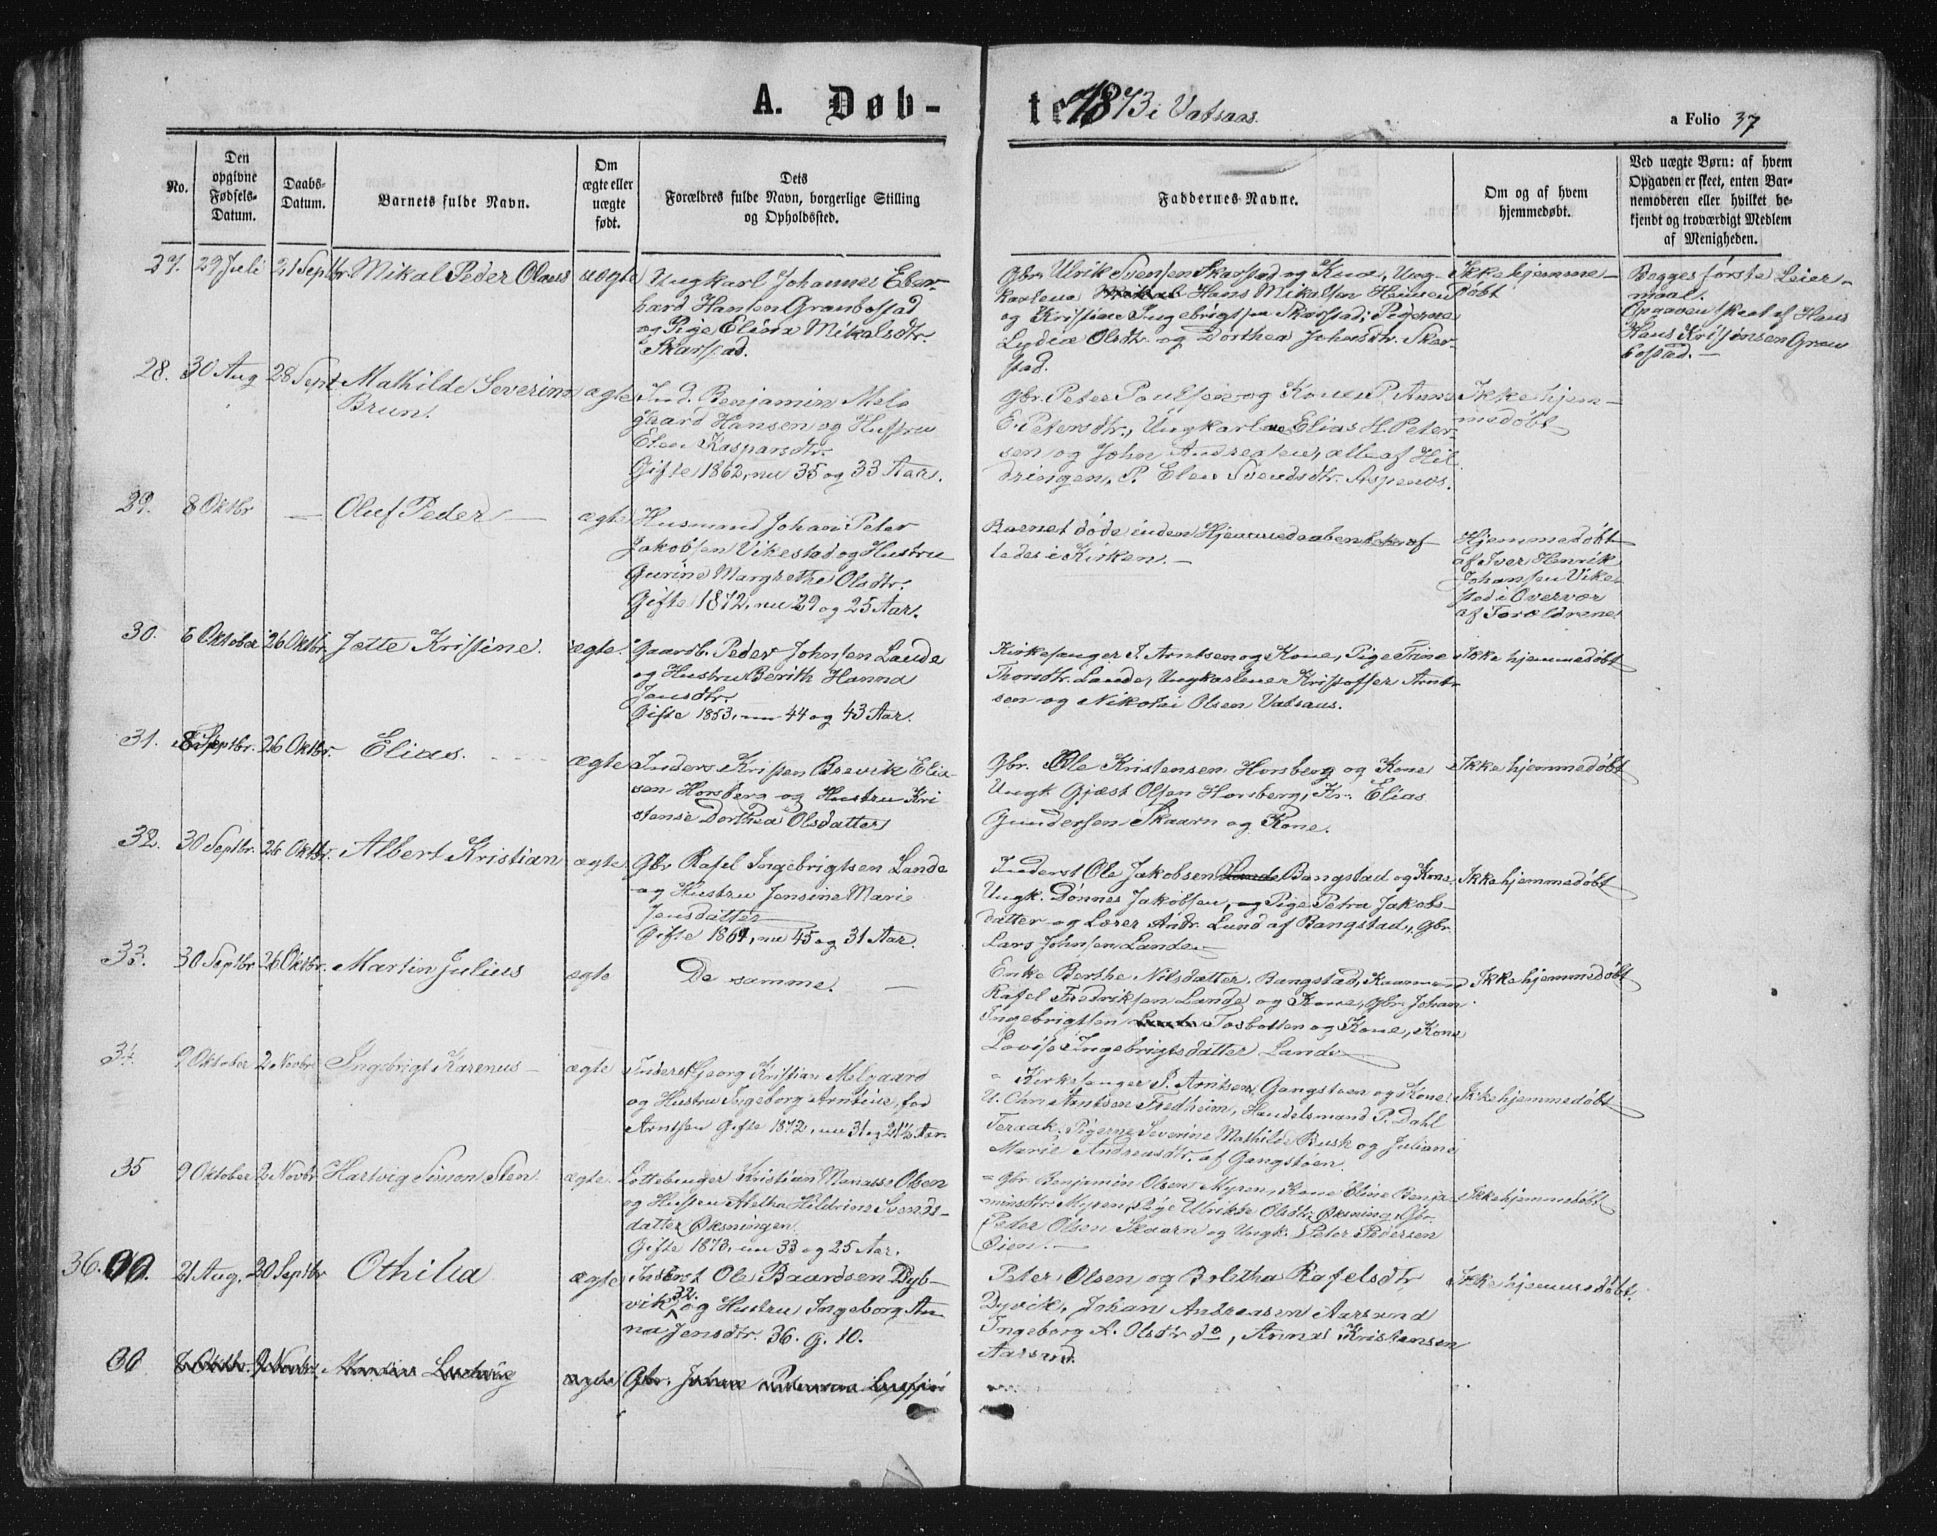 A. Døb-
te 1873 i Vatsaas.
a Folio 37
No.
Den opgivne Fødsels-Datum.
Daabs-Datum.
Barnets fulde Navn.
Om ægte eller uægte født.
Dets Forældres fulde Navn, borgerlige Stilling og Opholdssted.
Faddernes Navne.
Om og af hvem hjemmedøbt.
Ved uægte Børn: af hvem Opgaven er skeet, enten Barnemoderen eller hvilket bekjendt og troværdigt Medlem af Menigheden.
27. 29 Juli 21 Septbr. Mikal Peder Olaus uægte
Ungkarl Johannes Eber-
hard Hansen Granbostad
og Pige Elina Mikalsdtr.
Skarstad.
Gbr. Ulrik Svensen Skarstad og Kone, Ung-
karlene Hans Mikalsen Heimen
og Kristine Ingebrigtsen Skarstad; Pigerne
Lydia Olsdtr. og Dorthea Johnsdtr. Skar-
stad.
Ikke hjemme-
døbt
Begges første Leier-
maal.
Opgaven skeet af Hans
Hans Kristensen Gran
bostad. —
28. 30 Aug 28 Sept. Mathilde Severine
Brun.
ægte
Ind. Benjamin Mels
gaard Hansen og Hustru
Elen Kaspersdtr.
Gifte 1862, nu 35 og 33 Aar.
Gbr. Peter Paulsen og Kone P. Anna
E. Petersdtr., Ungkarlene Elias H. Peter-
sen og John Andreasen, alle af Hil
dringen, P. Elen Svendsdtr. Aspenes.
Ikke hjem-
medøbt
29. 8 Oktbr — Oluf Peder — ægte
Husmand Johan Peter
Jakobsen Vikestad og Hustru
Gurine Margrethe Olsdtr.
Gifte 1872, nu 29 og 25 Aar.
Barnet døde inden Hjemmedaaben
ledes i Kirken. —
Hjemmedøbt
af Iver Henrik
Johansen Vike-
stad i Overvær
af Forældrene
30. 6 Oktober 26 Oktbr. Jette Kristine. ægte.
Gaardb. Peder Johnsen Lande
og Hustru Berith Hanna
Jensdtr.
Gifte 1853, nu 44 og 43 Aar.
Kirkesanger P. Arntsen og Kone, Pige Trine
Thorsdtr. Lande, Ungkarlene Kristoffer Arnt-
sen og Nikolai Olsen Vatsaas.
Ikke hjemmedøbt
31. Septbr. 26 Oktbr. Elias. ægte
Inders. Kristen Brevik Elia-
sen Horsberg og Hustru Kri
stense Dorthea Olsdatter
Gbr. Ole Kristensen Horsberg og Kone
Ungk Gjæst Olsen Horsberg, Kr. Elias
Gundersen Skaarn og Kone.
Ikke hjemmedøbt
32. 30 Septbr. 26 Oktbr. Albert Kristian ægte
Gbr Rafel Ingebrigtsen Lande
og Hustru Jensine Marie
Jensdatter
Gifte 1864, nu 45 og 31 Aar.
Inderst Ole Jakobsen Lande Bangstad og Kone
Ungk. Dønnes Jakobsen, og Pige Petra Jakobs-
datter og Lærer Andr. Lund af Bangstad, Gbr.
Lars Johnsen Lande. —
Ikke hjemmedøbt
33. 30 Septbr 26 Oktbr. Martin Julius ægte
De samme. —
Enke Berthe Nilsdatter, Bangstad, Kaarmand
Rafel Fredriksen Lande og Kone, Gbr. Johan
Ingebrigtsen Lande Tosbotten og Kone, Kone
Lovise Ingebrigtsdatter Lande
Ikke hjemmedøbt
34. 9 Oktober 2 Novbr. Ingebrigt Karenus — ægte
Inderst Georg Kristian Melgaard
og Hustru Ingeborg Arntine, fød
Arntsen Gifte 1872, nu 31 og 21½ Aar.
Kirkesanger P. Arntsen Gangstøen og Kone
U. Chr. Arntsen Fredheim, Handelsmand P. Dahl
Teraak; Pigerne Severine Mathilde Busk og Juliane
Marie Andreasdtr. af Gangstøen.
Ikke hjemmedøbt
35 9 Oktober 2. Novbr. Hartvig Simon Sten ægte.
Lottebruger Kristian Manasse Olsen
og Hustru Hildrine Svends-
datter Øksningen.
Gifte 1873, nu 33 og 25 Aar.
Gbr Benjamin Olsen Myren, Kone Eline Benja
minsdtr. Myren, Pige Ulrikke Olsdtr. Øksning, Gbr.
Peder Olsen Skaarn og Ungk. Peter Pedersen
Øien. —
Ikke hjemmedøbt
36. 00. 21 Aug. 20 Septbr Othilia ægte
Inderst Ole Baardsen Dyb-
vik, 32. og Hustru Ingeborg An
na Jensdtr. 36. g. 10.
Peter Olsen og Boletha Rafelsdtr
Dyvik, Johan Andreasen Aarsund
Ingeborg A. Olsdtr do, Annas Kristensen
Aarsund
Ikke hjemmedøbt.
00 Oktbr. Novbr. Ludvig ægte Gbr. Johan Pedersen